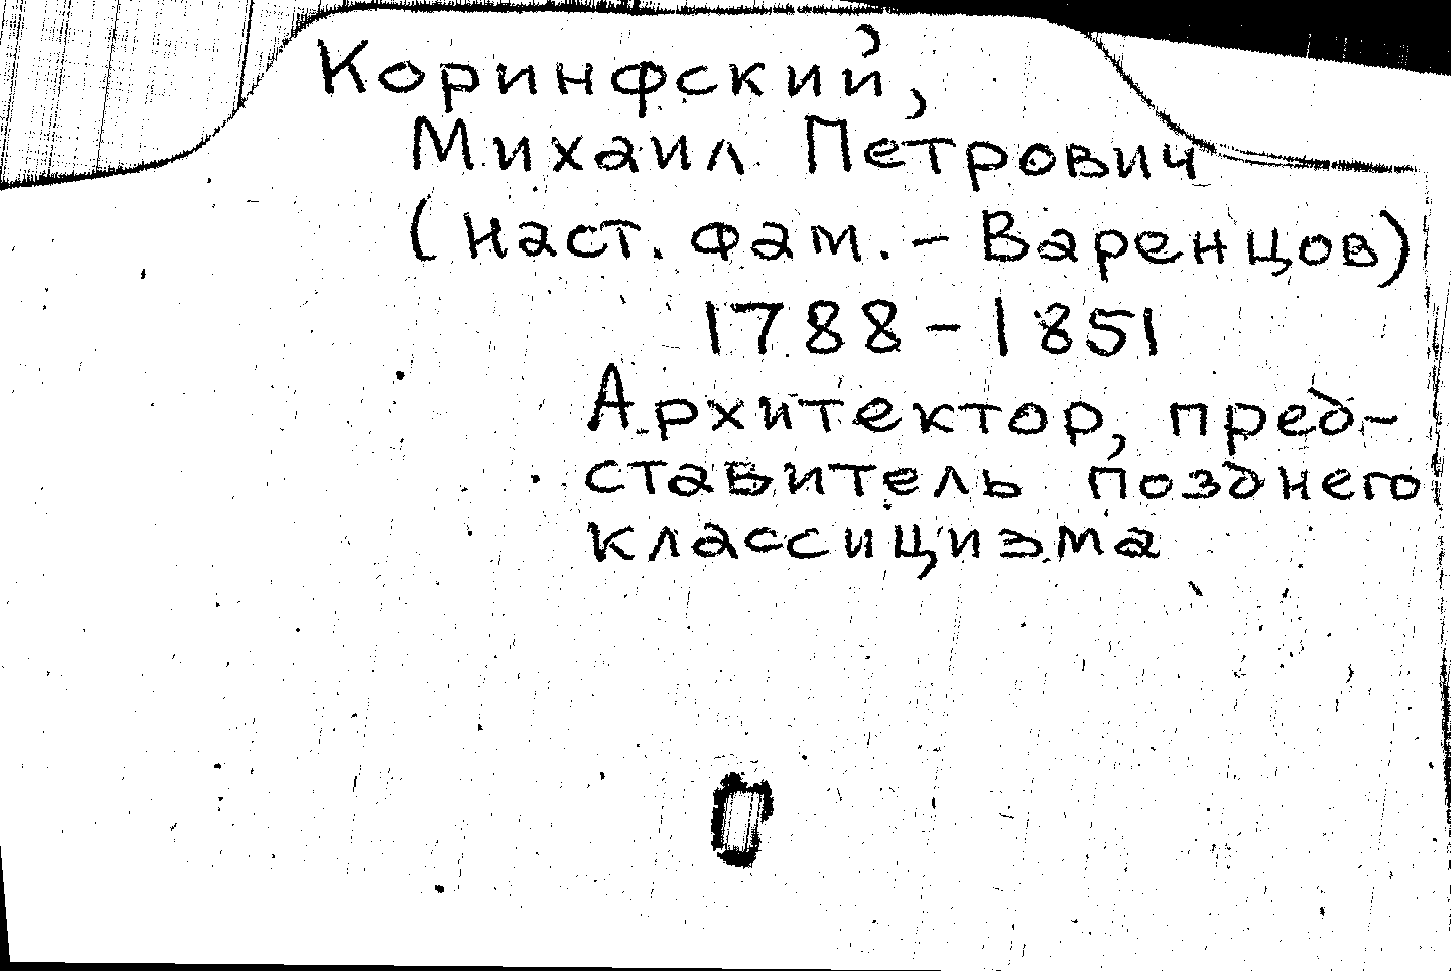 Коринфский,
Михаил Петрович
(наст. фам. - Варенцов)
1788-1851
Архитектор, пред-
ставитель позднего
классицизма